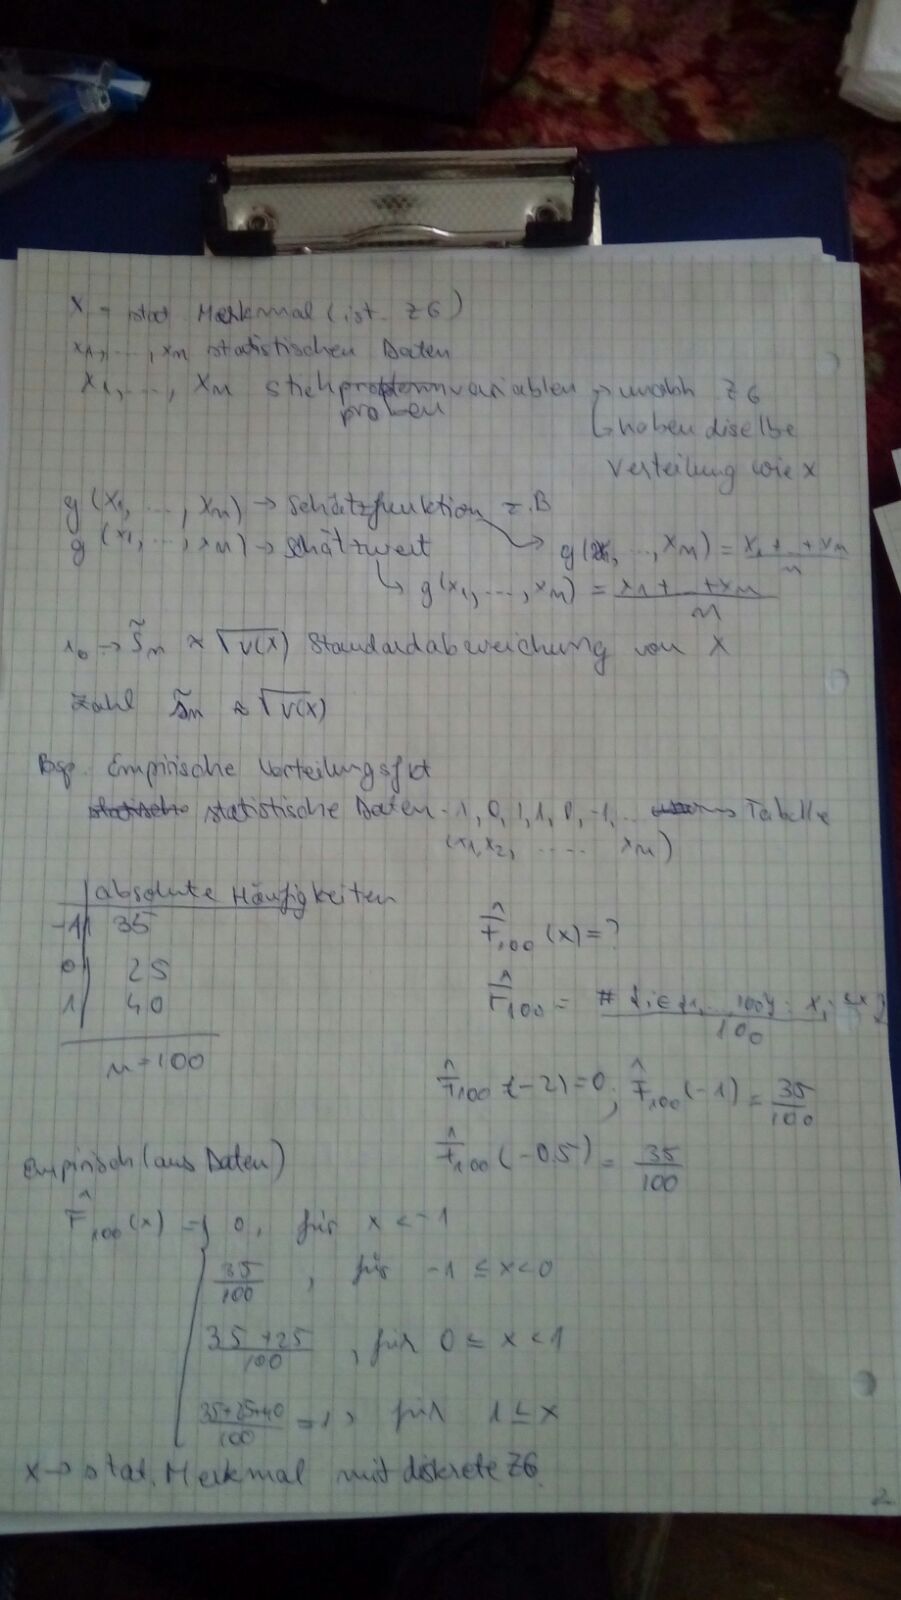 X - stat. Merkmal (ist ZG)
x1, ..., xn statistischen Daten
X1, ..., Xn Stichproben variablen → unabh ZG
↳ haben diselbe
Verteilung wie X
g(X1, ..., Xn) → Schätzfunktion z.B
g(x1, ..., xn) → Schätzwert → g(X1, ..., Xn) = (X1 + ... + Xn)/n
↳ g(x1, ..., xn) = (x1 + ... + xn)/n
→ S̃n ≈ √V(X) Standardabweichung von X
Zahl s̃n ≈ √V(X)
Bsp. Empirische Verteilungsfkt
statistische Daten -1, 0, 1, 1, 0, -1, ... Tabelle
(x1, x2, ..... xn)
absolute Häufigkeiten
-1 | 35
0 | 25
1 | 40
n = 100
F̂100 (x) = ?
F̂100 = #{i ∈ {1, ... 100}: xi ≤ x}/100
F̂100 (-2) = 0; F̂100 (-1) = 35/100
F̂100 (-0.5) = 35/100
Empirisch (aus Daten)
F̂100 (x) = { 0, für x < -1
35/100 , für -1 ≤ x < 0
(35+25)/100 , für 0 ≤ x < 1
(35+25+40)/100 = 1, für 1 ≤ x
X → stat. Merkmal mit diskrete ZG
2